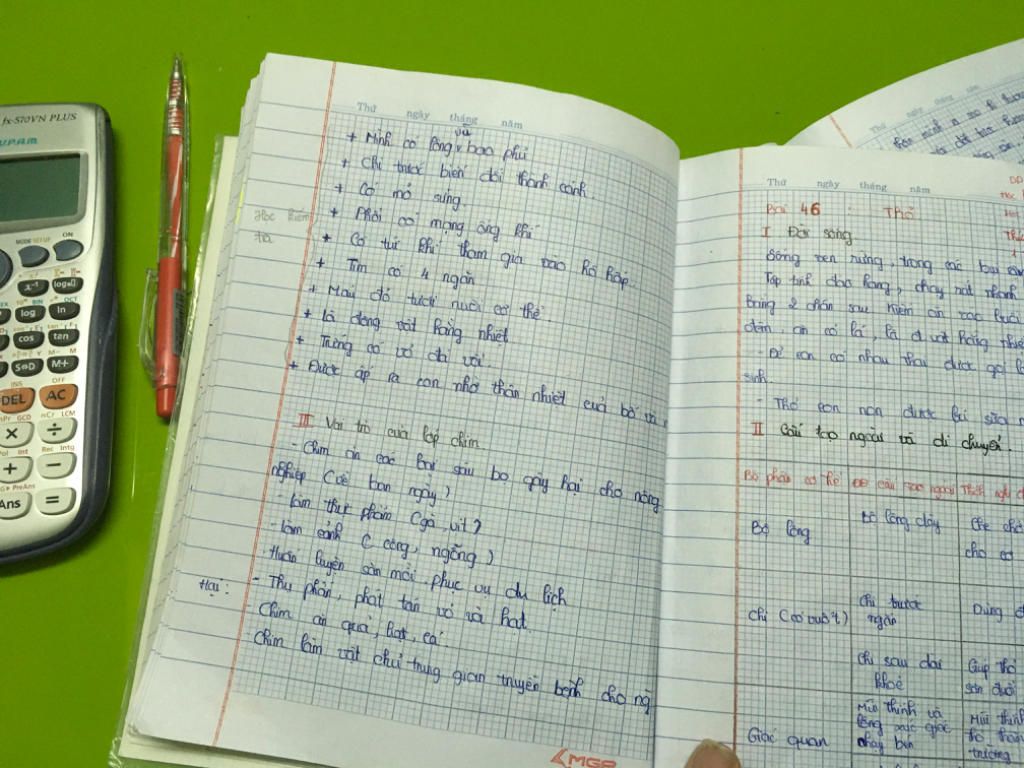 fx-570VN PLUS
MODE SETUP ON
x⁻¹ log▫
log ln
cos tan
S⇔D M+
DEL AC
× ÷
+ −
Ans =
Thứ ngày tháng năm
+ Mình có lông vũ bao phủ
+ Chi trước biến đổi thành cánh.
+ Có mỏ sừng.
+ Phổi có mạng ống khí
+ Có túi khí tham gia vào hô hấp.
+ Tim có 4 ngăn
+ Máu đỏ tươi nuôi cơ thể
+ Là động vật hằng nhiệt
+ Trứng có vỏ đá vôi.
+ Được ấp ra con nhờ thân nhiệt của bố và
III Vai trò của lớp chim
- Chim ăn các loại sâu bọ gây hại cho nông
nghiệp ( ban ngày)
- Làm thực phẩm (gà, vịt)
- Làm cảnh ( công, ngỗng )
Huấn luyện săn mồi, phục vụ du lịch
- Thụ phấn, phát tán và hạt.
Hại: - Chim ăn quả, hạt, cá.
Chim làm vật chủ trung gian truyền bệnh cho ng
MGP
Thứ ngày tháng năm
Bài 46 : Thỏ
I Đời sống
Sống ven rừng, trong các bụi
Tập tính đào hang, chạy rất nhanh
Bằng 2 chân sau kiếm ăn vào buổi
đêm, ăn cỏ lá, là đ vật hằng nhiệ
Đẻ con có nhau thai được gọi là
sinh.
- Thỏ con non được bú sữa m
II Cấu tạo ngoài và di chuyển.
Bộ phận cơ thể ĐĐ cấu tạo ngoài Thích nghi
Bộ lông Bộ lông dày Che chở
cho cơ
Chi (có vuốt) Chi trước ngắn Dùng đ
Chi sau dài khoẻ Giúp thỏ
săn đuổi
Giác quan Mũi thính và lông xúc giác nhạy bén Mũi thính
Thứ ngày tháng năm